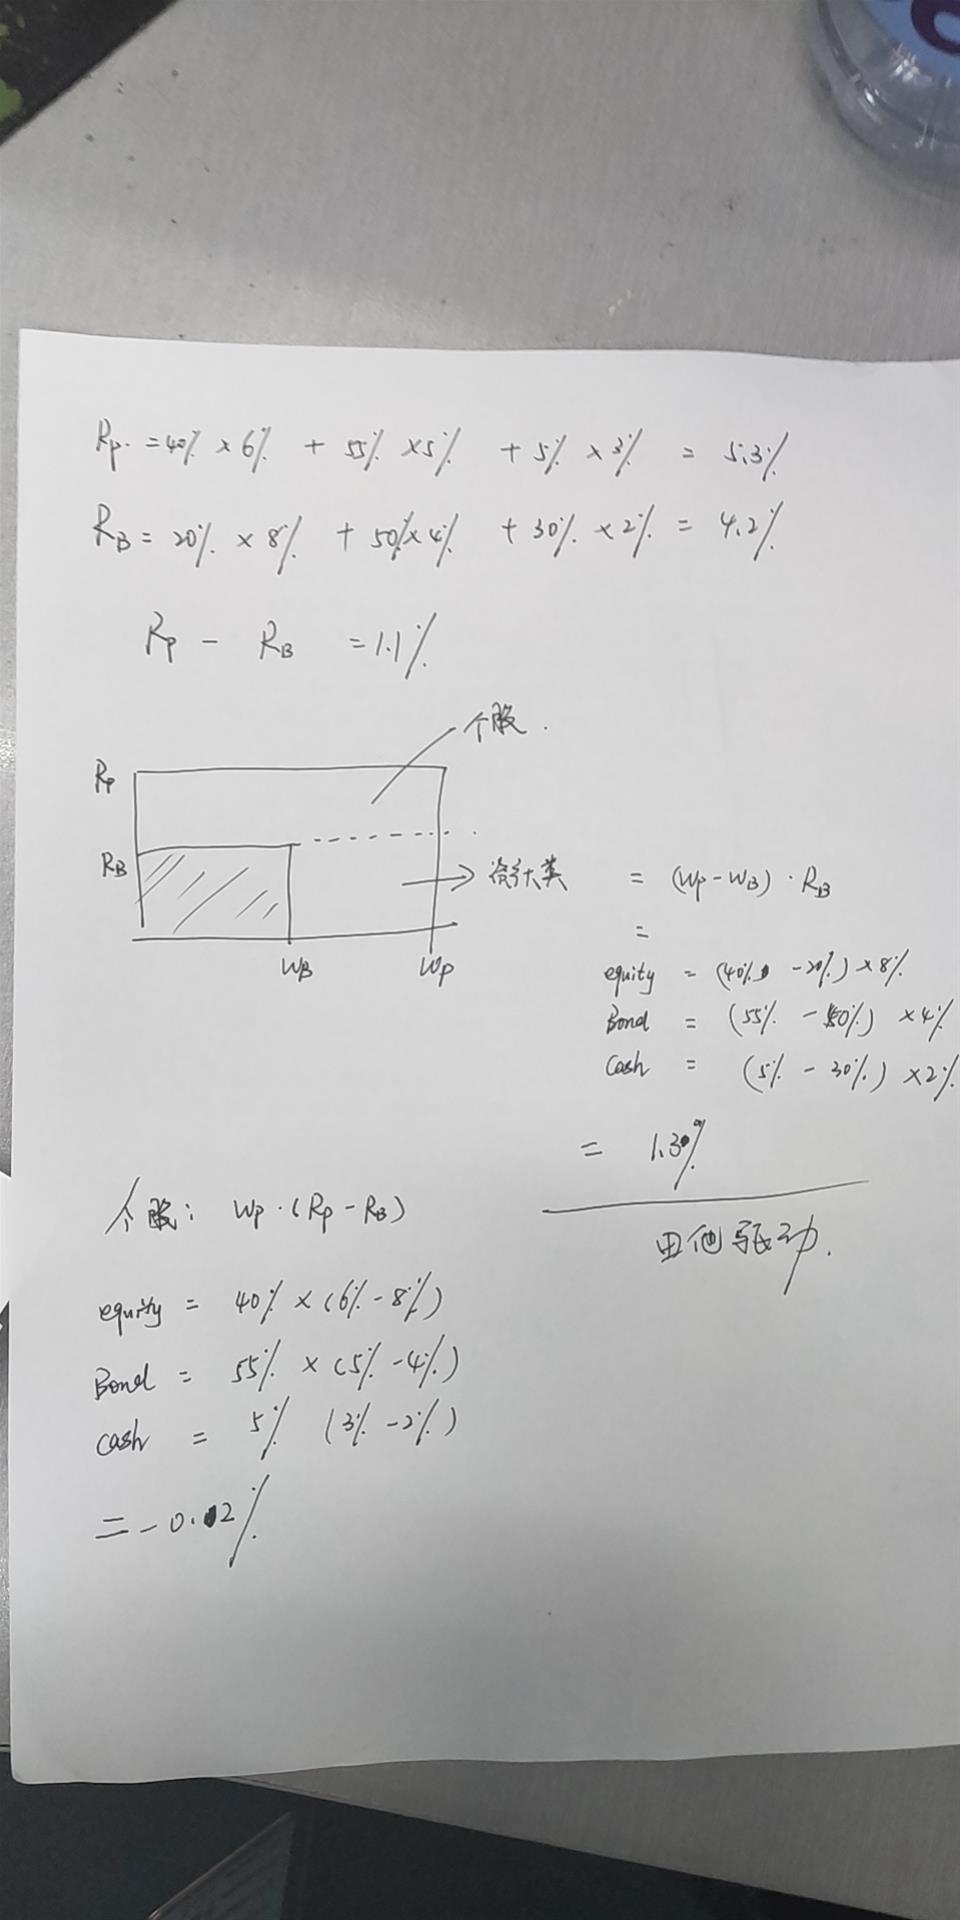 Rp. = 40% × 6% + 55% × 5% + 5% × 3% = 5.3%
RB = 20% × 8% + 50% × 4% + 30% × 2% = 4.2%
Rp - RB = 1.1%
个股.
Rp
RB
资产大类 = (Wp - WB) · RB
=
WB Wp
equity = (40% - 20%) × 8%
Bond = (55% - 50%) × 4%
Cash = (5% - 30%) × 2%
= 1.30%
由他驱动.
个股: Wp · (Rp - RB)
equity = 40% × (6% - 8%)
Bond = 55% × (5% - 4%)
cash = 5% (3% - 2%)